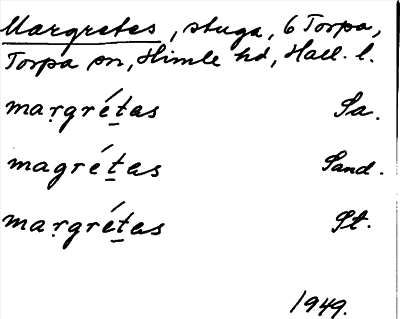 Margretes, stuga, 6 Torpa,
Torpa sn, Himle hd, Hall. l.
maṛgré̱tas Sa.
magré̱tas Sand.
maṛgré̱tas St.
1949.